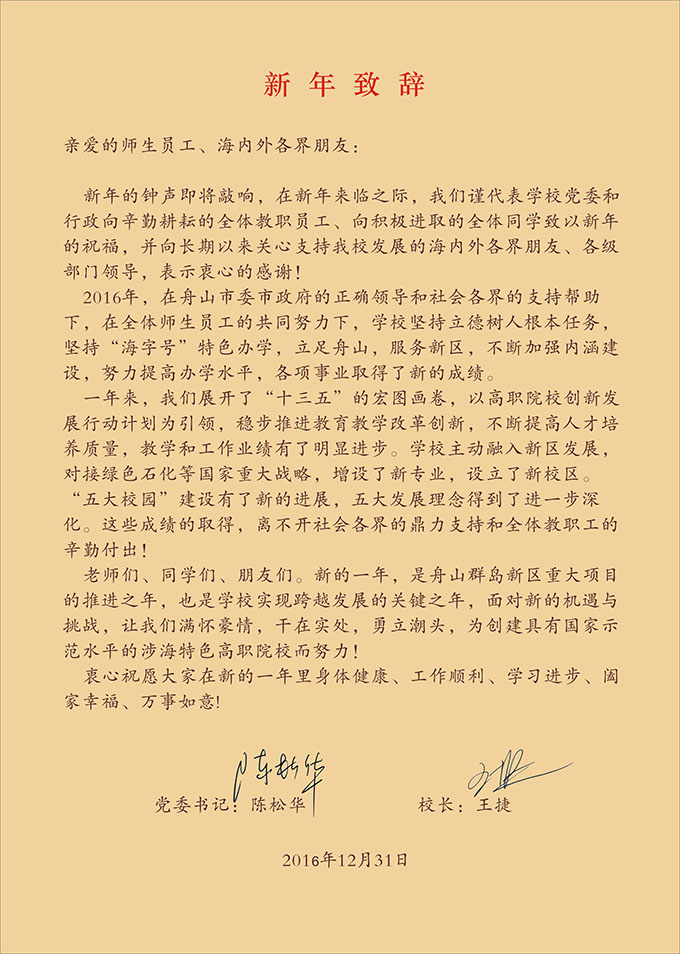 新年致辞
亲爱的师生员工、海内外各界朋友：
新年的钟声即将敲响，在新年来临之际，我们谨代表学校党委和
行政向辛勤耕耘的全体教职员工、向积极进取的全体同学致以新年
的祝福，并向长期以来关心支持我校发展的海内外各界朋友、各级
部门领导，表示衷心的感谢！
2016年，在舟山市委市政府的正确领导和社会各界的支持帮助
下，在全体师生员工的共同努力下，学校坚持立德树人根本任务，
坚持“海字号”特色办学，立足舟山，服务新区，不断加强内涵建
设，努力提高办学水平，各项事业取得了新的成绩。
一年来，我们展开了“十三五”的宏图画卷，以高职院校创新发
展行动计划为引领，稳步推进教育教学改革创新，不断提高人才培
养质量，教学和工作业绩有了明显进步。学校主动融入新区发展，
对接绿色石化等国家重大战略，增设了新专业，设立了新校区。
“五大校园”建设有了新的进展，五大发展理念得到了进一步深
化。这些成绩的取得，离不开社会各界的鼎力支持和全体教职工的
辛勤付出！
老师们、同学们、朋友们。新的一年，是舟山群岛新区重大项目
的推进之年，也是学校实现跨越发展的关键之年，面对新的机遇与
挑战，让我们满怀豪情，干在实处，勇立潮头，为创建具有国家示
范水平的涉海特色高职院校而努力！
衷心祝愿大家在新的一年里身体健康、工作顺利、学习进步、阖
家幸福、万事如意!
陈松华 王捷
党委书记：陈松华 校长：王捷
2016年12月31日